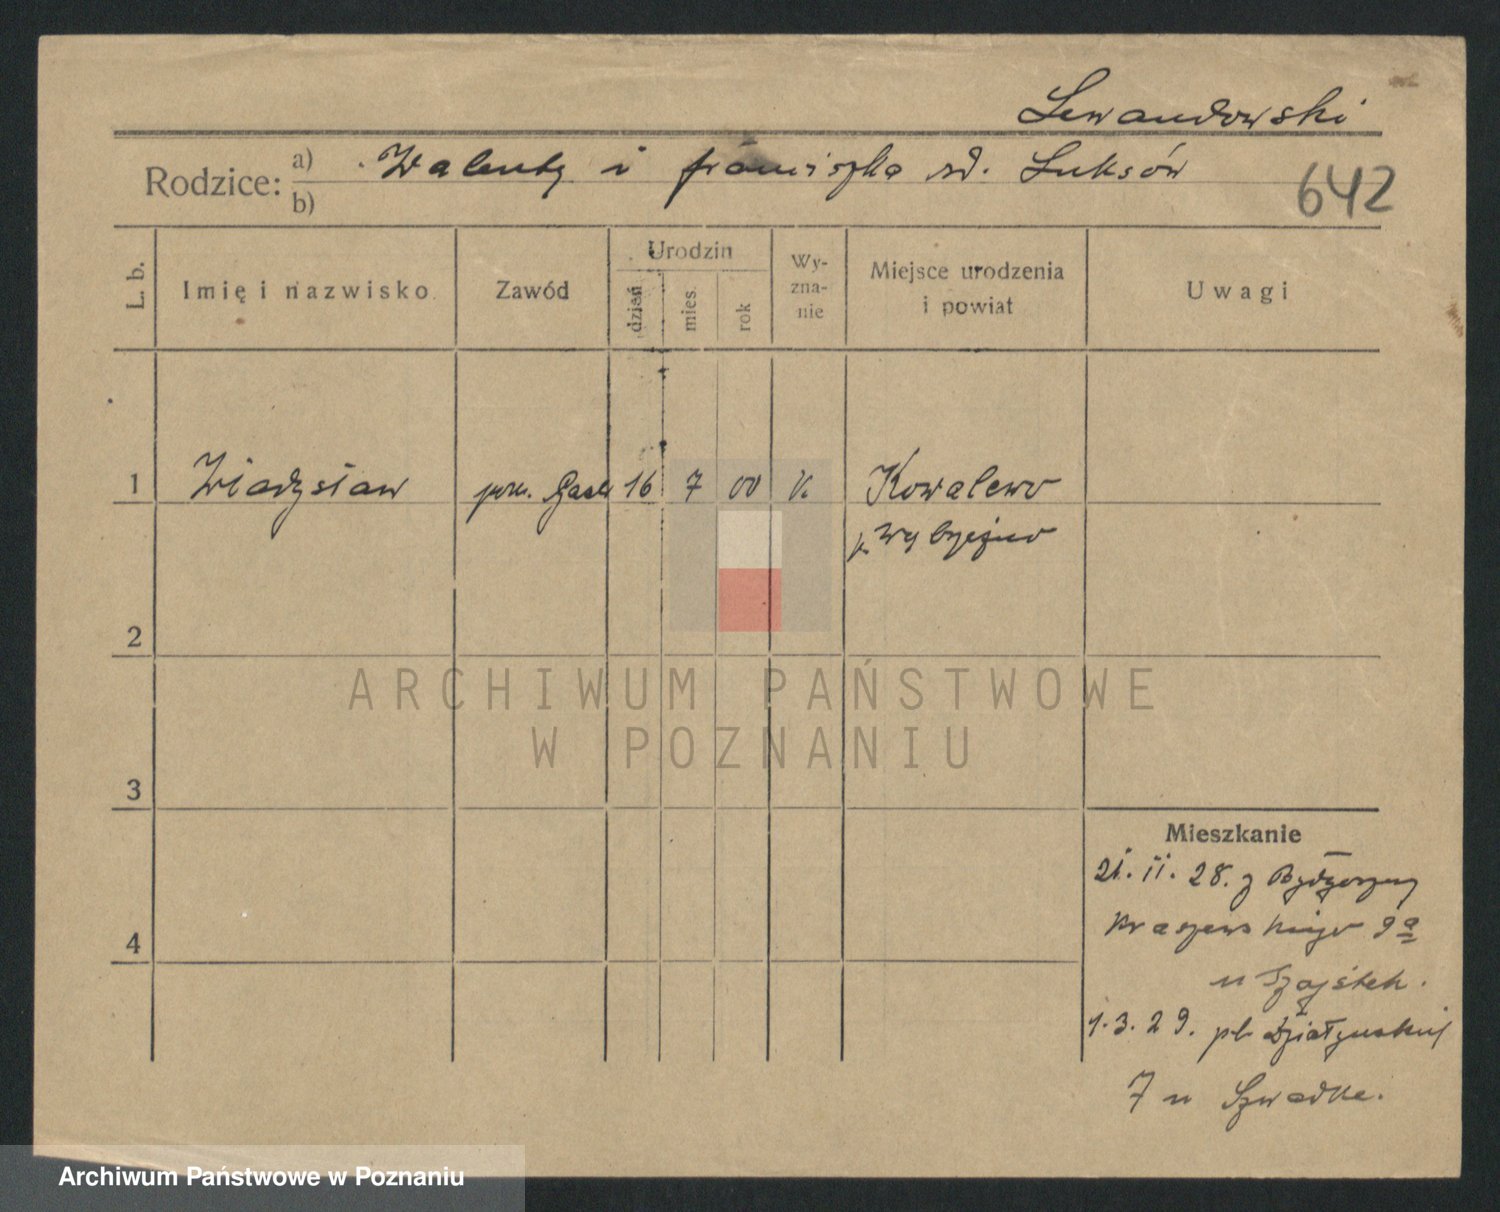 Lewandowski
Rodzice: a) Walenty i Franciszka zd. Luksów
b)
642
L. b.
Imię i nazwisko
Zawód
Urodzin
dzień
mies.
rok
Wy-
zna-
nie
Miejsce urodzenia
i powiat
Uwagi
1 Władysław 16 7 00 k Kowalewo
p.
2
ARCHIWUM PAŃSTWOWE
W POZNANIU
3
Mieszkanie
21. 11. 28. z Bydgoszczy
Kraszewskiego 9a
u
4
1. 3. 29. pl. Działyńskich
7 u
Archiwum Państwowe w Poznaniu